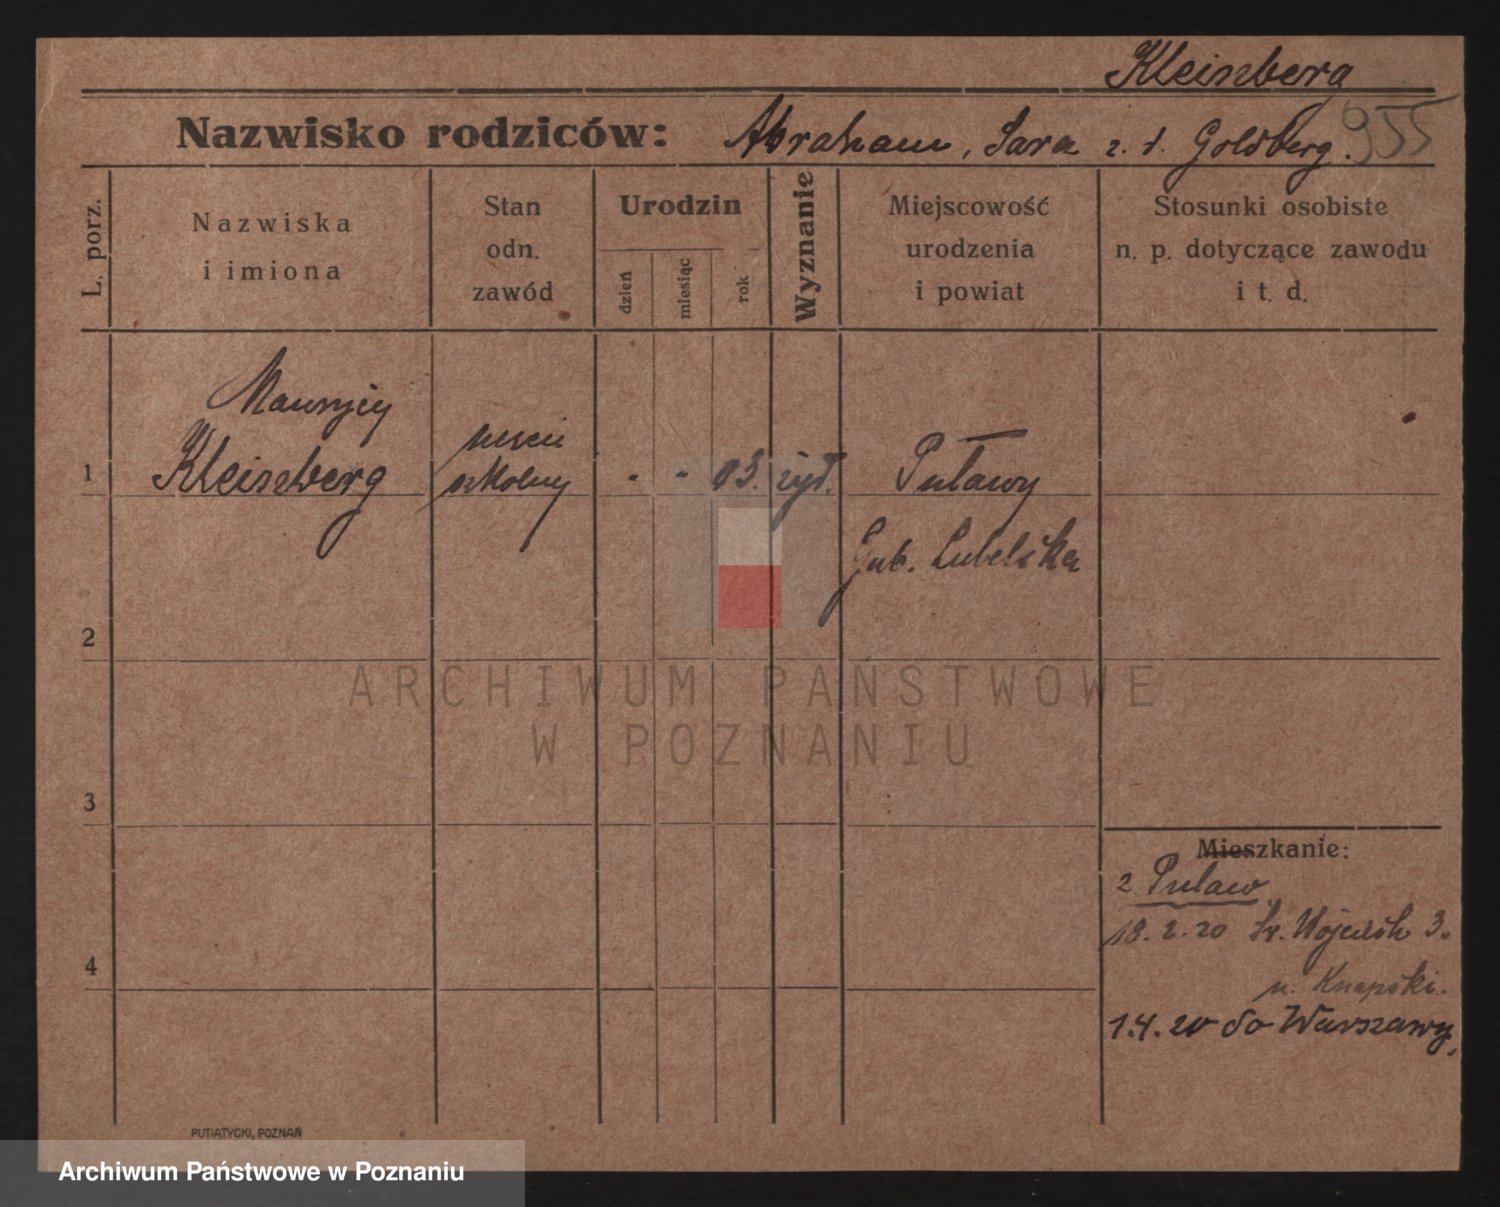 Kleinberg
Nazwisko rodziców: Abraham, Sara z. d. Goldberg. 955
L. porz.
Nazwiska
i imiona
Stan
odn.
zawód
Urodzin
dzień
miesiąc
rok
Wyznanie
Miejscowość
urodzenia
i powiat
Stosunki osobiste
n. p. dotyczące zawodu
i t. d.
1
Maurycy
Kleinberg
uczeń
szkolny
- - 03. żyd.
Puławy
Gub. Lubelska
2
ARCHIWUM PAŃSTWOWE
W POZNANIU
3
4
Mieszkanie:
z Puław
18.2.20 Św. Wojciech 3.
u. Knapski.
1.4.20 do Warszawy.
PUTIATYCKI, POZNAŃ
Archiwum Państwowe w Poznaniu